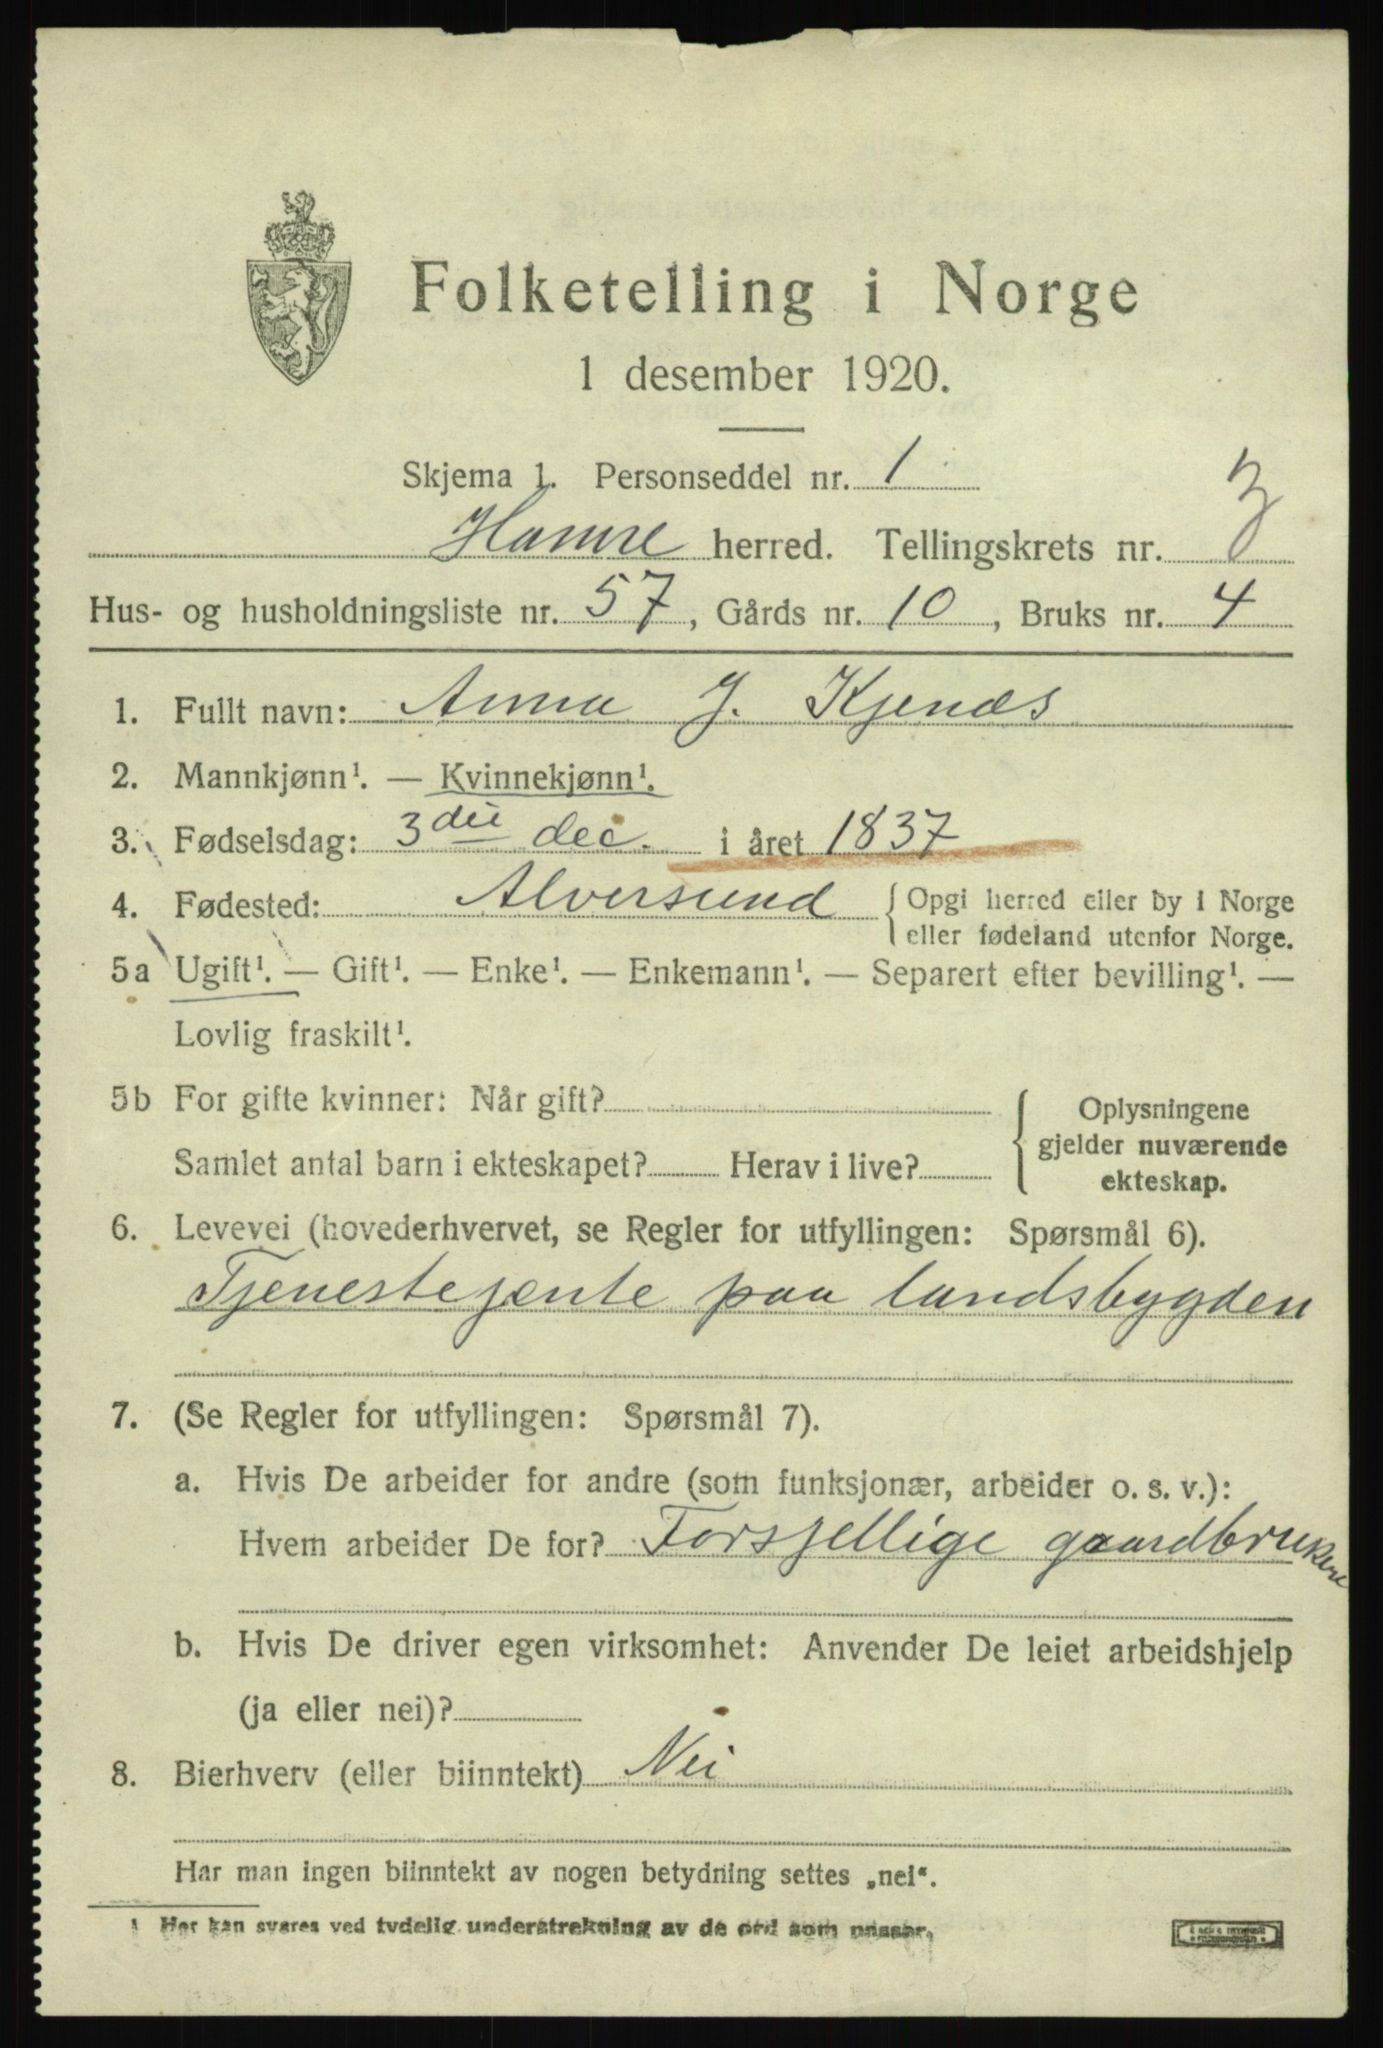 Folketelling i Norge
1 desember 1920.
Skjema 1. Personseddel nr. 1
Hamre herred. Tellingskrets nr. 3
Hus- og husholdningsliste nr. 57, Gårds nr. 10, Bruks nr. 4
1. Fullt navn: Anna J. Kjenæs
2. Mannkjønn¹. — Kvinnekjønn¹.
3. Fødselsdag: 3die dec. i året 1837
4. Fødested: Alversund { Opgi herred eller by i Norge
eller fødeland utenfor Norge.
5a Ugift¹. — Gift¹. — Enke¹. — Enkemann¹. — Separert efter bevilling¹. —
Lovlig fraskilt¹.
5b For gifte kvinner: Når gift?
Samlet antal barn i ekteskapet? Herav i live?
Oplysningene
gjelder nuværende
ekteskap.
6. Levevei (hovederhvervet, se Regler for utfyllingen: Spørsmål 6).
Tjenestejente paa landsbygden
7. (Se Regler for utfyllingen: Spørsmål 7).
a. Hvis De arbeider for andre (som funksjonær, arbeider o. s. v.):
Hvem arbeider De for? Forsjellige gaardbrukere
b. Hvis De driver egen virksomhet: Anvender De leiet arbeidshjelp
(ja eller nei)?
8. Bierhverv (eller biinntekt) Nei
Har man ingen biinntekt av nogen betydning settes „nei“.
1 Her kan svares ved tydelig understrekning av de ord som passer.